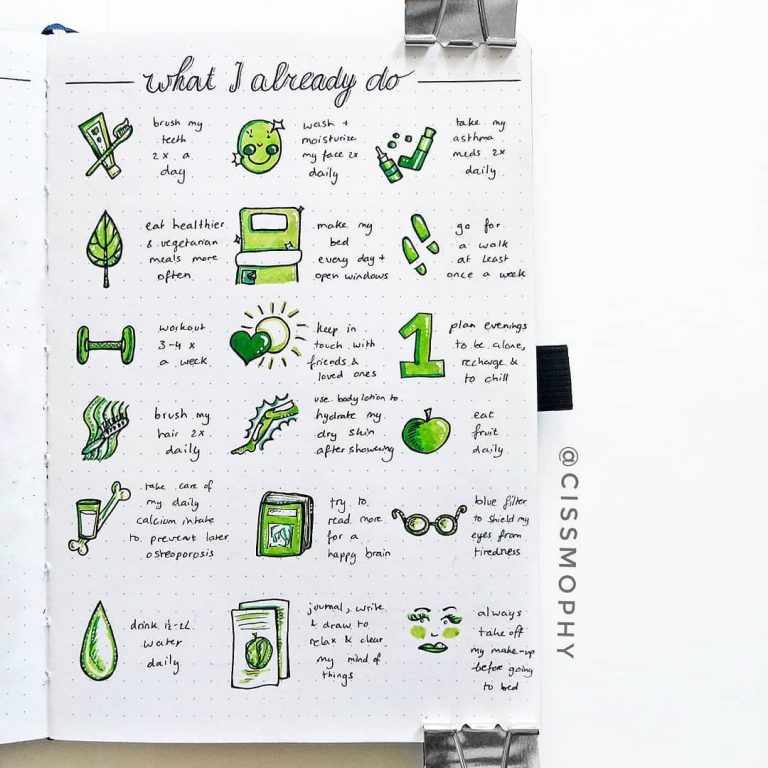 what I already do
brush my
teeth
2x a
day
wash +
moisturize
my face 2x
daily
take my
asthma
meds 2x
daily
eat healthier
& vegetarian
meals more
often
make my
bed
every day +
open windows
go for
a walk
at least
once a week
workout
3-4 x
a week
keep in
touch with
friends &
loved ones
1
plan evenings
to be alone,
recharge &
to chill
brush my
hair 2x
daily
use body lotion to
hydrate my
dry skin
after showering
eat
fruit
daily
take care of
my daily
calcium intake
to prevent later
osteoporosis
try to
read more
for a
happy brain
blue filter
to shield my
eyes from
tiredness
drink 1½-2L
water
daily
journal, write
& draw to
relax & clear
my mind of
things
always
take off
my make-up
before going
to bed
@CISSMOPHY